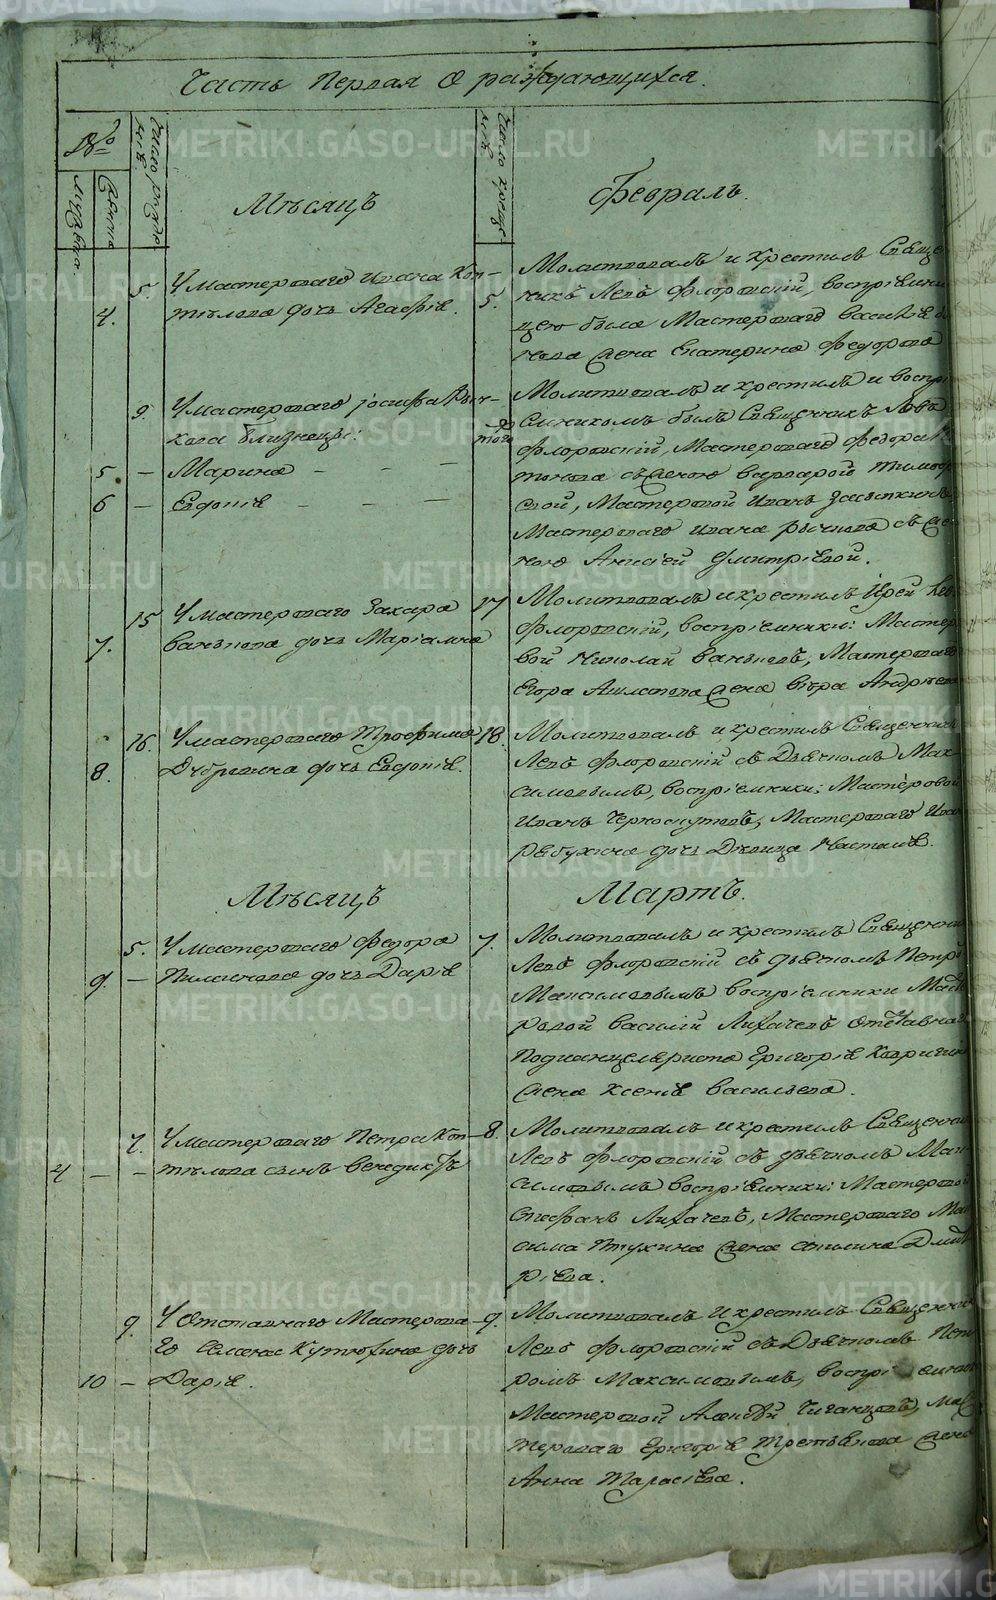 Часть Первая О раждающихся.
№
мужеска
женска
число рожде
нiй.
Мѣсяцъ
число креще
нiй.
Февраль.
4.
5.
У Мастероваго Ивана Коп-
тѣлова дочь Агафiя.
5.
Молитвовалъ и крестилъ Священ
никъ Левъ Флоровскiй, воспрiемни
цею была Мастероваго Василья
жена Екатерина Федорова
9
У мастероваго Iосифа Рыч-
кова близнецы:
того
Молитвовалъ и крестилъ и воспрi
емникомъ былъ Священникъ Левъ
Флоровскiй, Мастероваго Федора
съ женою Варварою Тимофе
евой, Мастеровой Иванъ
Мастероваго Ивана Рычкова съ же
ною Анисiей Дмитрiевой.
5 — Марина — — —
6 — Евдокiя — — —
7.
15
У мастероваго Захара
дочь Марiамна
17
Молитвовалъ и крестилъ Iерей Левъ
Флоровскiй, воспрiемники: Мастеро
вой Николай Мастероваго
Егора жена Вѣра Андреева
8.
16.
У мастероваго Трофима
дочь Евдокiя.
18.
Молитвовалъ и крестилъ Священникъ
Левъ Флоровскiй съ Дьячкомъ Мак-
симовымъ, воспрiемники: Мастеровой
Иванъ Мастероваго Ивана
Рябухина дочь Дѣвица Настасья.
Мѣсяцъ
Мартъ.
9.
5.
У мастероваго Федора
— дочь Дарiя
7.
Молитвовалъ и крестилъ Священник
Левъ Флоровскiй съ дьячкомъ Петр
Максимовымъ воспрiемники Масте
ровой Василiй Лихачевъ отставнаго
Подканцеляриста Григорiя
жена Ксенiя Васильева.
4 — —
7.
У мастероваго Петра Коп-
тѣлова сынъ Венедиктъ
8.
Молитвовалъ и крестилъ Священник
Левъ Флоровскiй съ дьячкомъ Мак
симовымъ воспрiемники: Мастеровой
Стефанъ Лихачевъ, Мастероваго Мак
сима Птухина жена Дмит
рiева.
9.
У Отставнаго Мастерова-
го Семена Кутюхина дочь
10 — Дарiя.
9.
Молитвовалъ и крестилъ Священник
Левъ Флоровскiй съ Дьячкомъ Пет
ромъ Максимовымъ, воспрiемники
Мастеровой Алексѣй Мас
тероваго Григорiя Третьякова жена
Анна Тарасiева.
METRIKI.GASO-URAL.RU